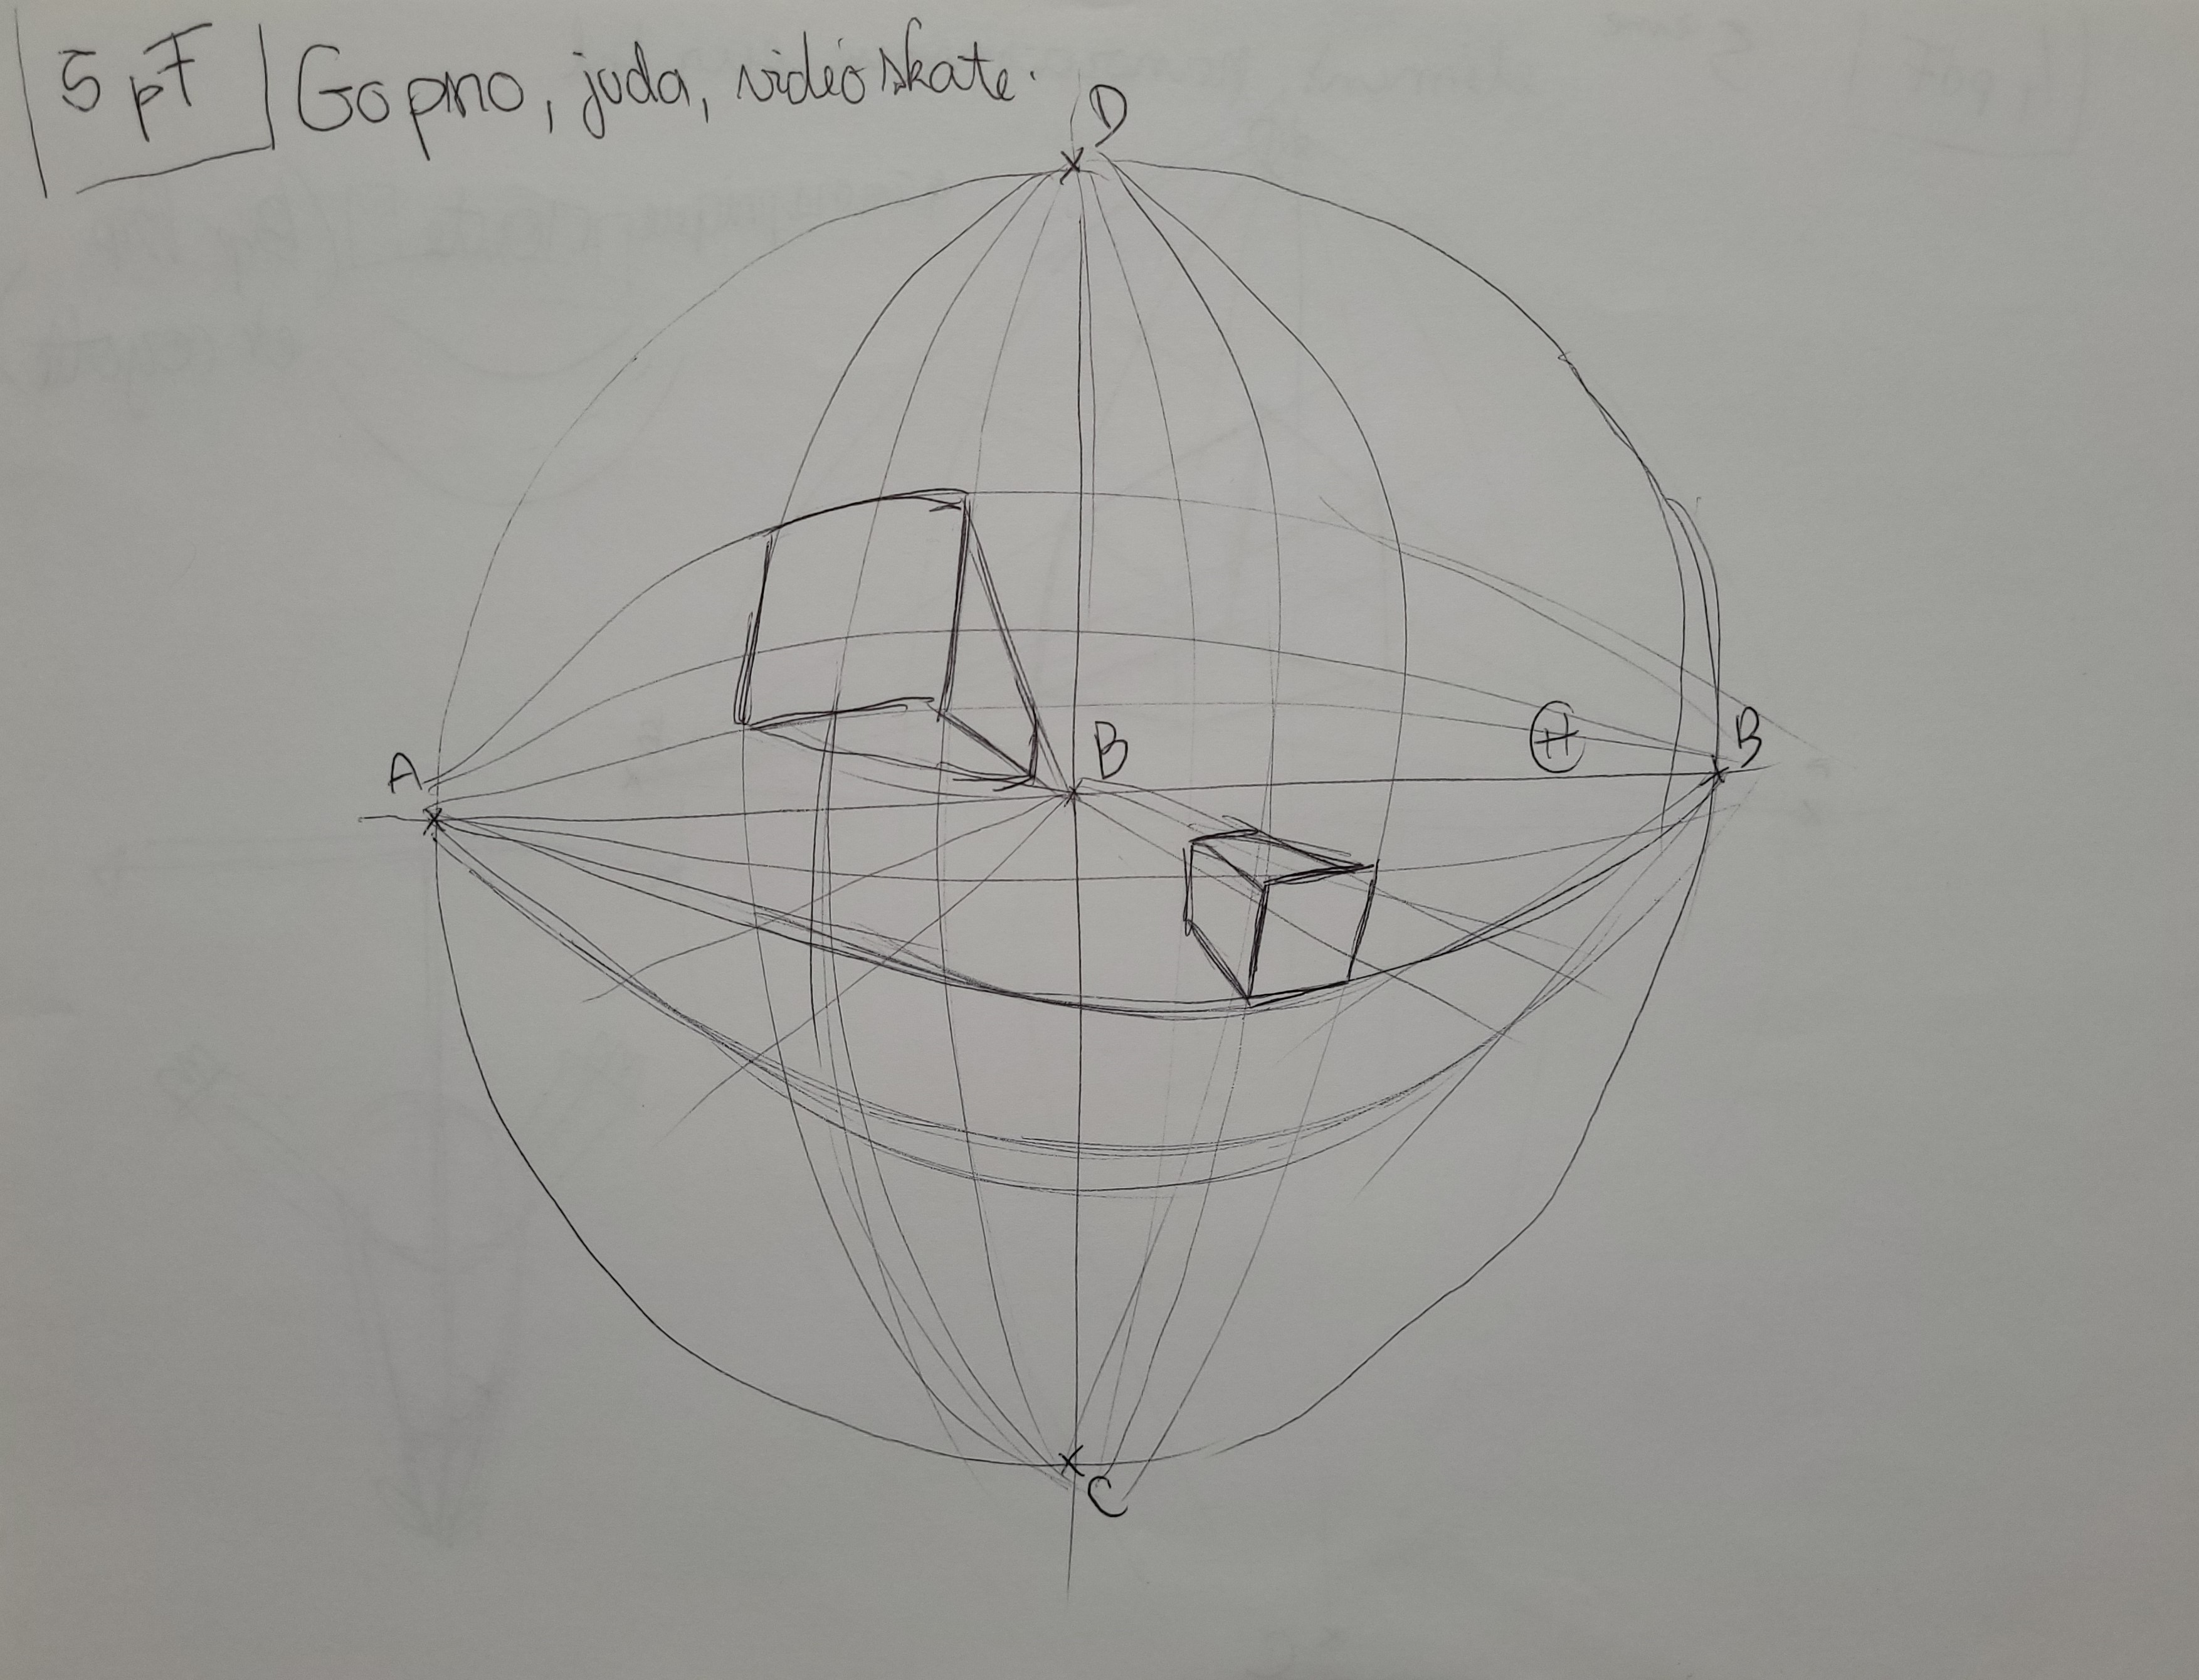 5 pF Gopro, juda, vidéo skate.
D
A
B
H
B
C